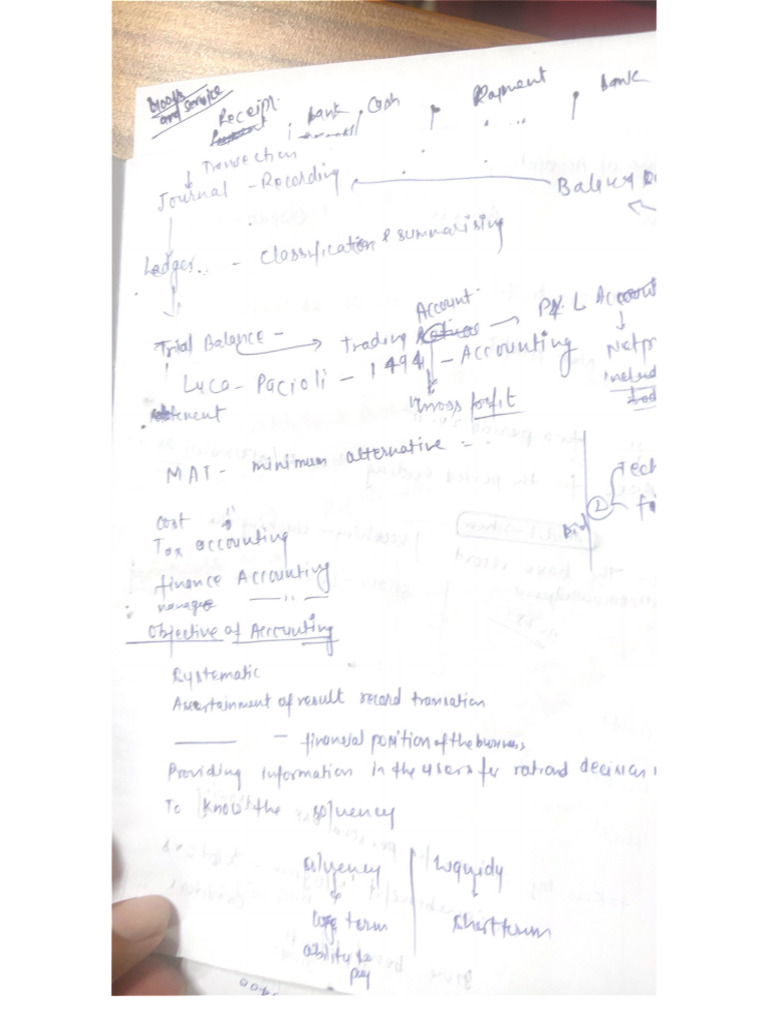 Goods
and service
Receipt | Bank, Cash Payment Bank
Transection
Journal - Recording Balance
Ledger.. - Classification & summarising
Account
Trial Balance - Trading P& L Account
Luca - Pacioli - 1494 - Accounting Netpr
includ
Gross
MAT - minimum alternative =
Tech
2
Cost "
Tax accounting
finance Accounting
manage — " —
Objective of Accounting
Systematic
Ascertainment of result record transation
—— - financial position of the business
Providing information in the users for rational decision
To know the solvency
solvency | Liquidy
long term shortterm
ability to
pay